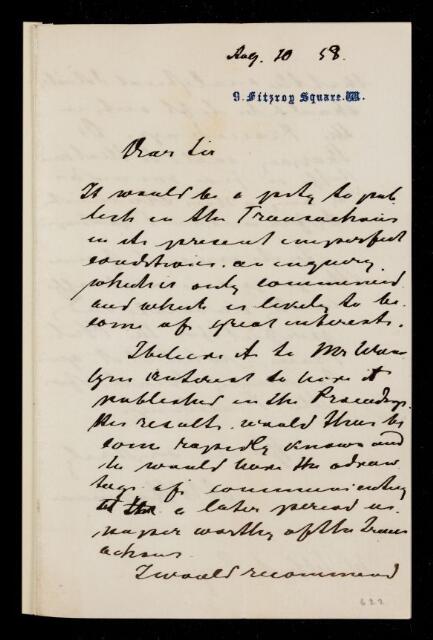 Aug. 10 58.
9. Fitzroy Square. W.
Dear Sir
It would be a pity to pub
lish in the Transactions
in its present imperfect
condition. an inquiry
which is only commenced
and which is likely to be
come of great interest.
I believe it to Mr
interest to have it
published in the Proceedings.
His results would thus be
come rapidly known and
he would have the advan
tage of communicating
at a later period a
paper worthy of the Trans
actions
I would recommend
622